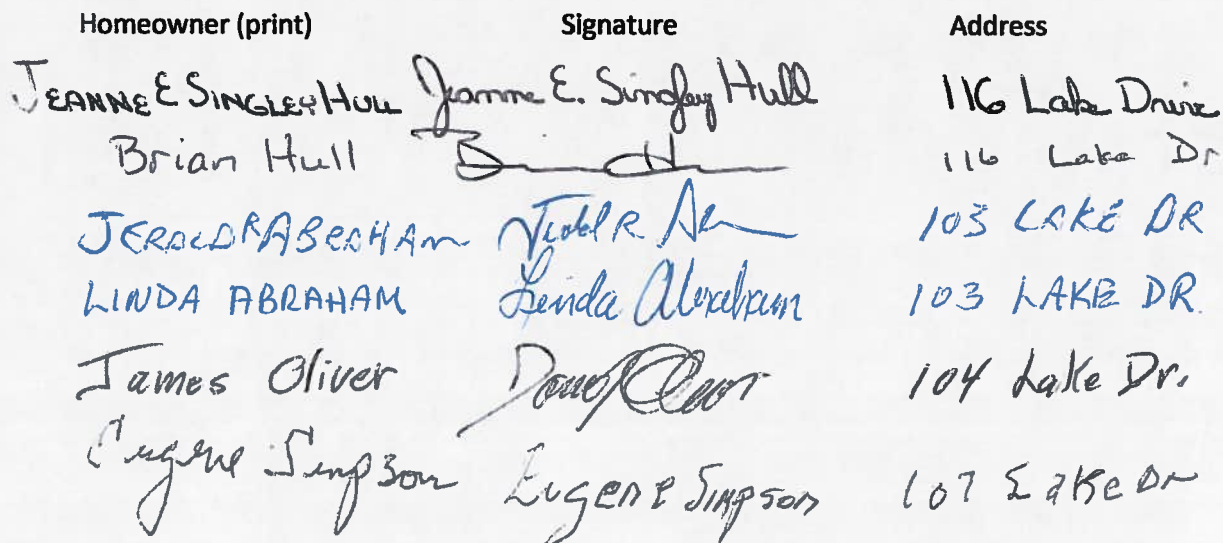 Homeowner (print) Signature Address
JEANNE E SINGLEY HULL Jeanne E. Singley Hull 116 Lake Drive
Brian Hull 116 Lake Dr
JEROLD R ABRAHAM 103 LAKE DR
LINDA ABRAHAM Linda Abraham 103 LAKE DR.
James Oliver 104 Lake Dr.
Eugene Simpson Eugene Simpson 107 Lake Dr